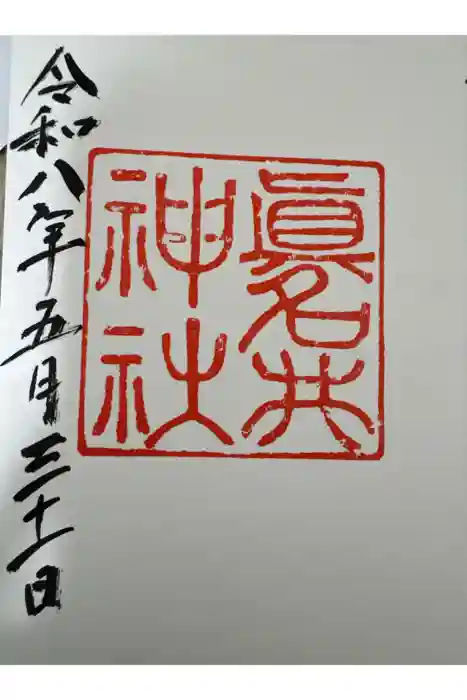 眞名井
神社
令和八年五月三十一日